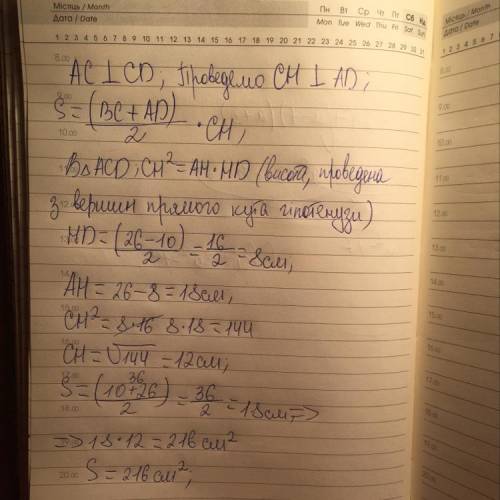 Місяць / Month
Дата / Date
Пн Вт Ср Чт Пт Сб Нд
Mon Tue Wed Thu Fri Sat Sun
1 2 3 4 5 6 7 8 9 10 11 12 13 14 15 16 17 18 19 20 21 22 23 24 25 26 27 28 29 30 31
8.00
AC ⊥ CD; Проведемо CH ⊥ AD;
9.00
S = (BC + AD)/2 · CH;
10.00
В △ ACD; CH² = AH · HD (висота, проведена
12.00
з вершин прямого кута гіпотенузи)
HD = (26-10)/2 = 16/2 = 8см;
14.00
AH = 26 - 8 = 18см;
CH² = 8·16 8·18 = 144
16.00
CH = √144 = 12см;
17.00
36
S = (10+26)/2 = 36/2 = 18см =>
18.00
=> 18 · 12 = 216 см²
20.00
S = 216 см²;